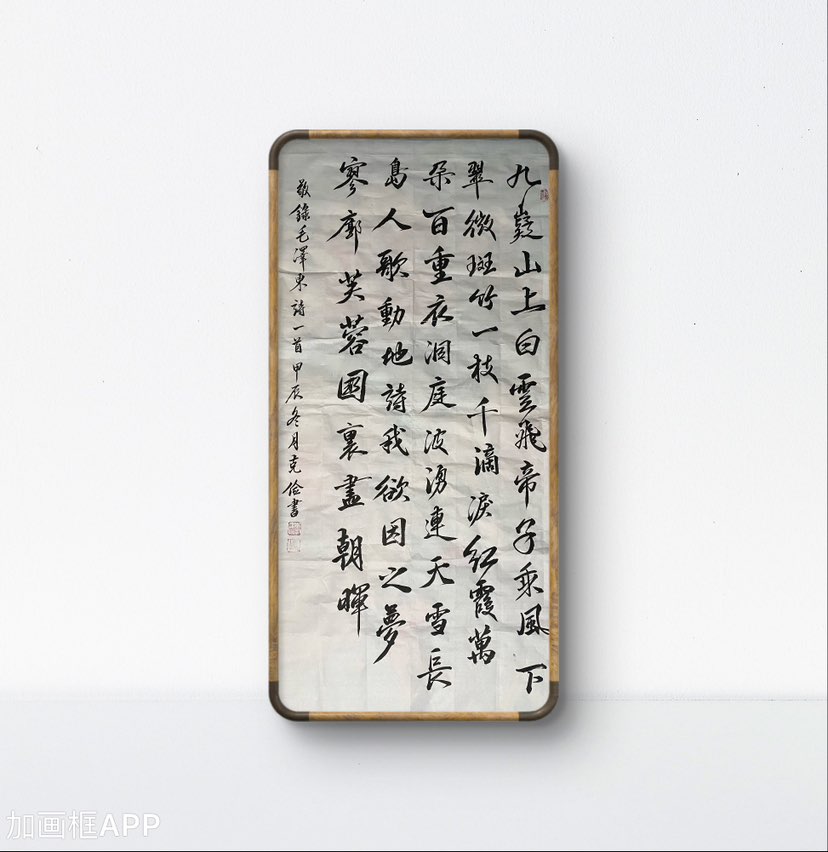 九嶷山上白雲飛帝子乘風下
翠微斑竹一枝千滴淚紅霞萬
朵百重衣洞庭波湧連天雪長
島人歌動地詩我欲因之夢
寥廓芙蓉國裏盡朝暉
敬錄毛澤東詩一首甲辰冬月克俭書
加画框APP